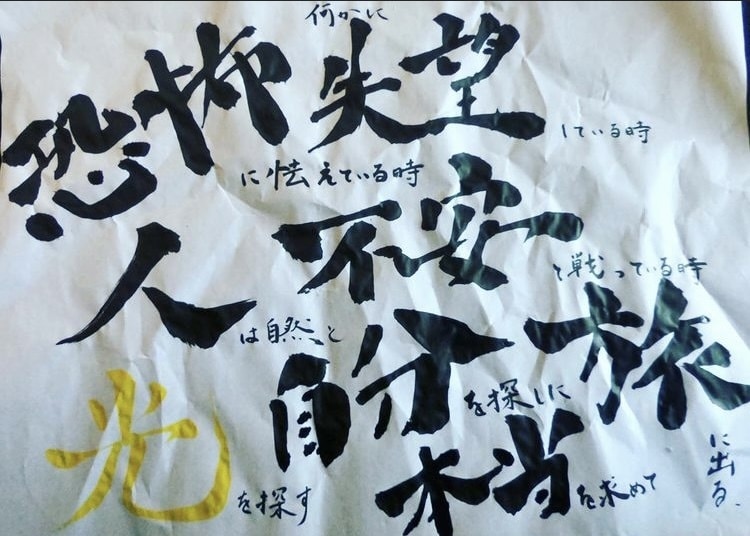 何かに失望している時
恐怖に怯えている時
不安と戦っている時
人は自然と
光を探す
自分を探しに
本当を求めて
旅に出る、